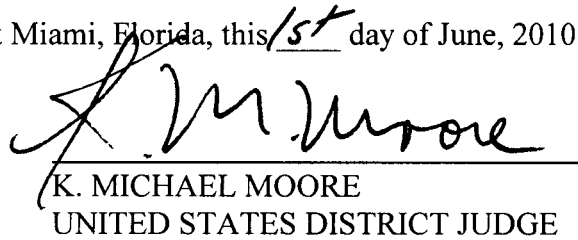 Miami, Florida, this 1st day of June, 2010
K. M. Moore
K. MICHAEL MOORE
UNITED STATES DISTRICT JUDGE